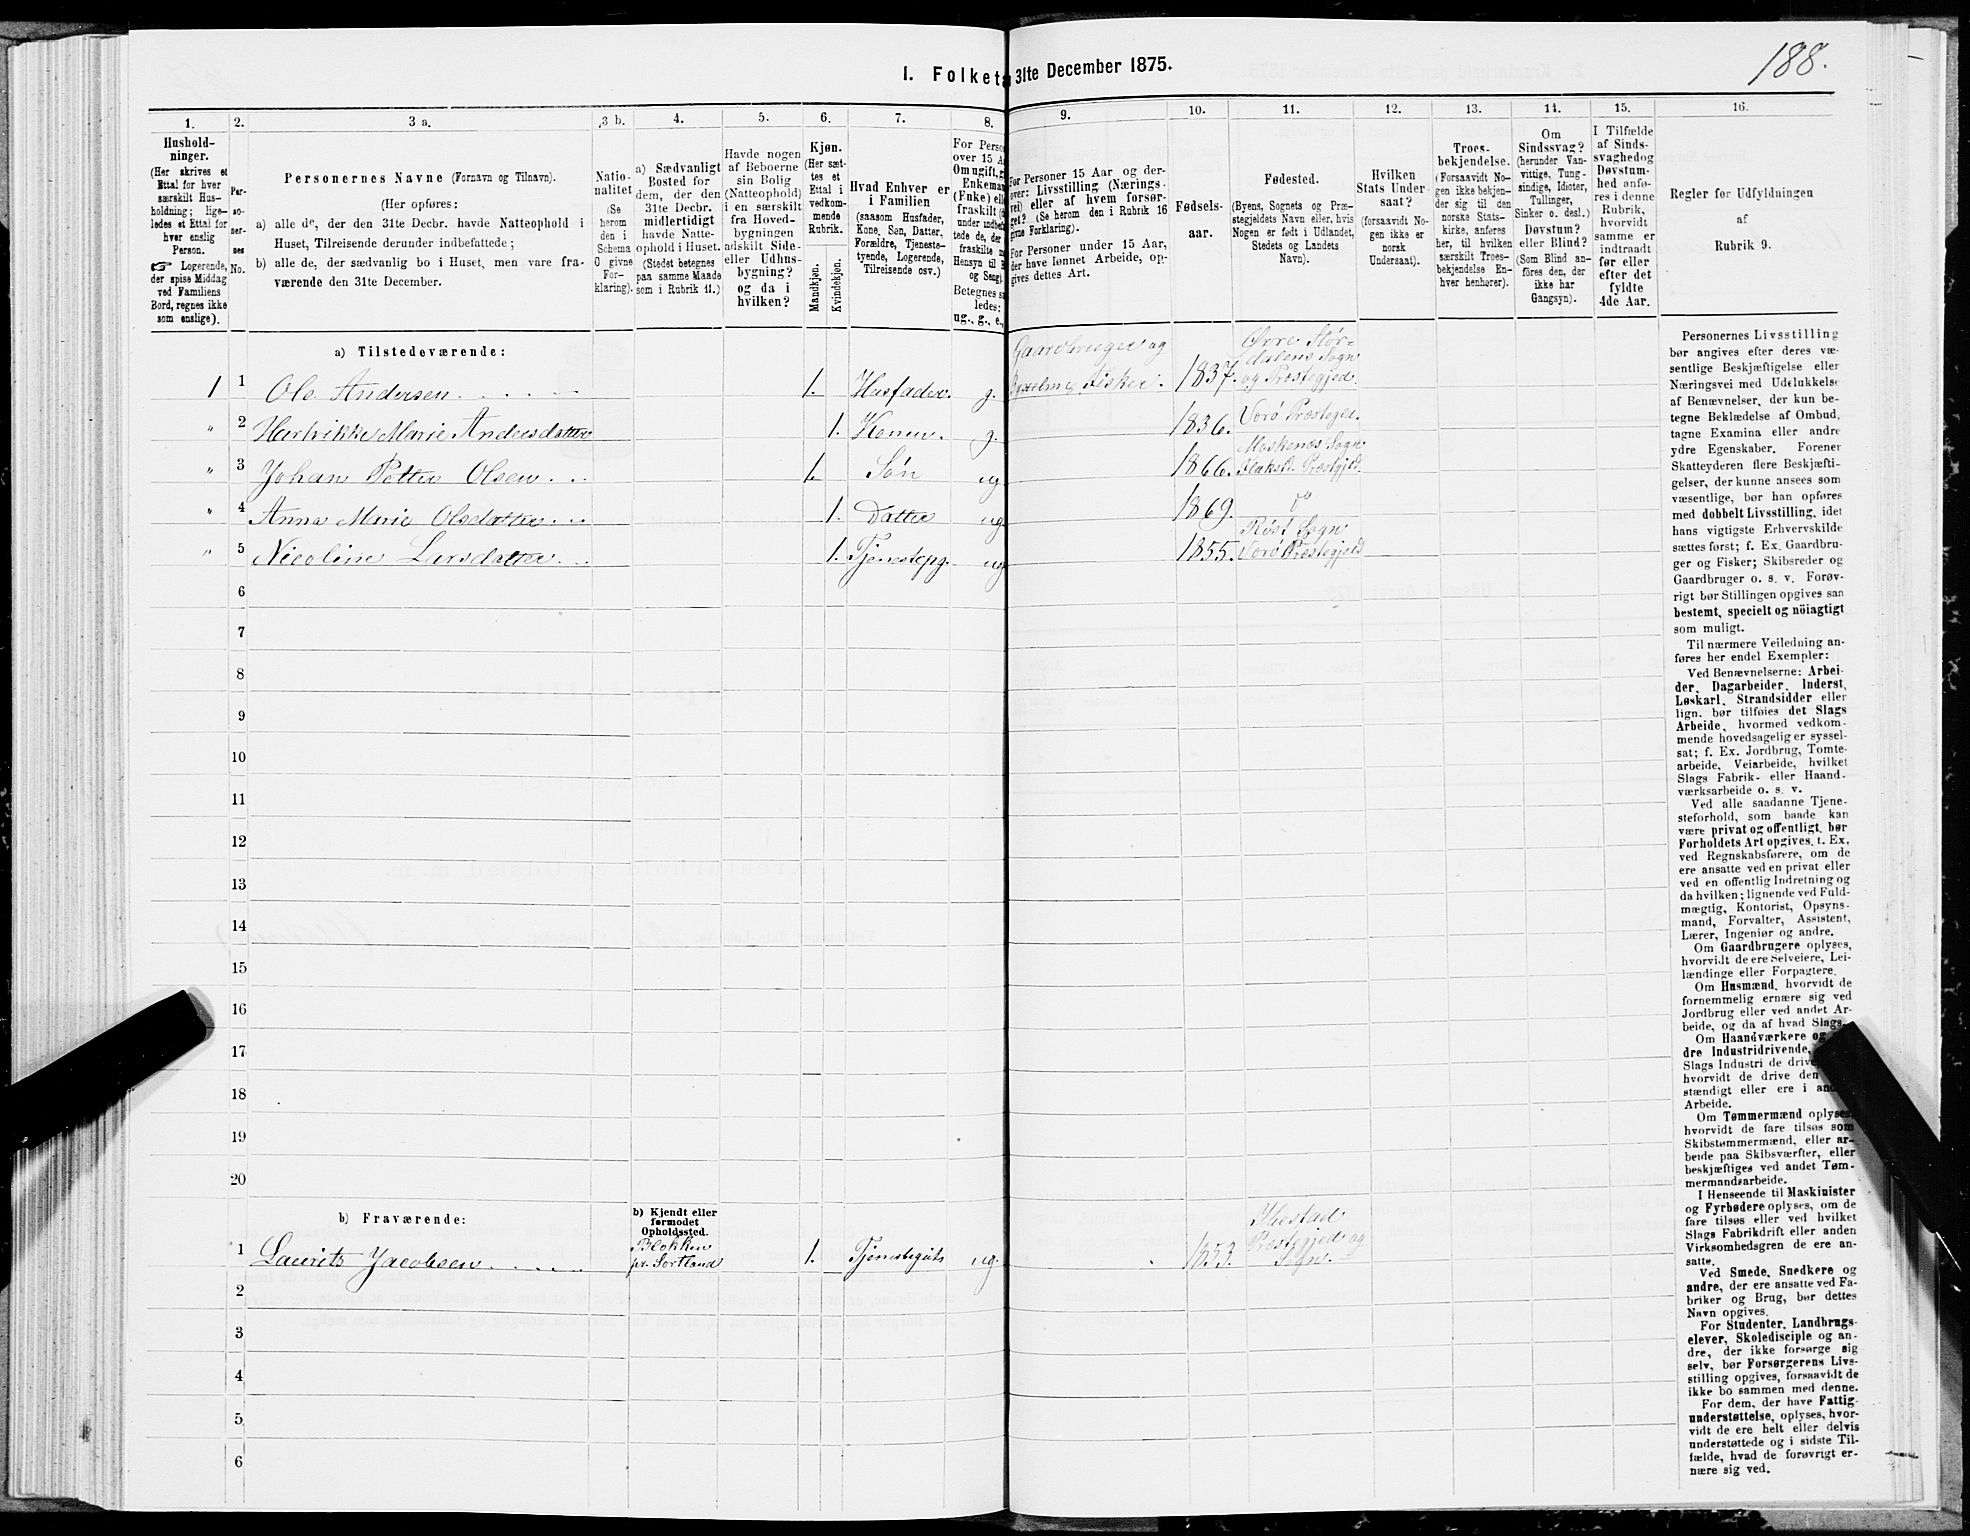 188.
I. Folket 31te December 1875.
1. 2. 3 a. 3 b. 4. 5. 6. 7. 8. 9. 10. 11. 12. 13. 14. 15. 16.
Hushold-
ninger.
(Her skrives et
Ettal for hver
særskilt Hus-
holdning; lige-
ledes et Ettal for
hver enslig
Person.
☞ Logerende,
der spise Middag
ved Familiens
Bord, regnes ikke
som enslige).
Per-
so-
ner-
nes
No.
Personernes Navne (Fornavn og Tilnavn).
(Her opføres:
a) alle de, der den 31te Decbr. havde Natteophold i
Huset, Tilreisende derunder indbefattede;
b) alle de, der sædvanlig bo i Huset, men vare fra-
værende den 31te December.
Natio-
nalitet
(Se
herom
den i
Schema
O givne
For-
klaring).
a) Sædvanligt
Bosted for
dem, der den
31te Decbr.
havde midlertidigt
Natte-
ophold i Huset.
(Stedet betegnes
paa samme Maade
som i Rubrik 11.)
Havde nogen
af Beboerne
sin Bolig
(Natteophold)
i en særskilt
fra Hoved-
bygningen
adskilt Side-
eller Udhus-
bygning?
og da i
hvilken?
Kjøn.
(Her sæt-
tes et
Ettal i
vedkom-
mende
Rubrik.
Mandkjøn.
Kvindekjøn.
Hvad Enhver er
i Familien
(saasom Husfader,
Kone, Søn, Datter,
Forældre, Tjeneste-
tyende, Logerende,
Tilreisende osv.)
For Perso
over 15 A
Om ugift, g
Enkeman
(Enke) ell
fraskilt
under
indbef
tede de, der
fraskilte
Hensyn til B
og Seng)
Betegnes s
ledes:
ug., g., e.,
For Personer 15 Aar og der-
over: Livsstilling (Nærings-
vei) eller af hvem forsør-
get? (Se herom den i Rubrik 16
givne Forklaring).
For Personer under 15 Aar,
der have lønnet Arbeide, op-
gives dettes Art.
Fødsels-
aar.
Fødested.
(Byens, Sognets og Præ-
stegjeldets Navn eller, hvis
Nogen er født i Udlandet,
Stedets og Landets
Navn).
Hvilken
Stats Under-
saat?
(forsaavidt No-
gen ikke er
norsk
Undersaat).
Troes-
bekjendelse.
(Forsaavidt No-
gen ikke bekjen-
der sig til den
norske Stats-
kirke, anføres
her, til hvilken
særskilt Troes-
bekjendelse En-
hver henhører).
Om
Sindssvag?
(herunder Van-
vittige, Tung-
sindige, Idioter,
Tullinger,
Sinker o. desl.)
Døvstum?
eller Blind?
(Som Blind an-
føres den, der
ikke har
Gangsyn).
I Tilfælde
af Sinds-
svaghed og
Døvstum-
hed anfø-
res i denne
Rubrik,
hvorvidt
samme er
indtraadt
før eller
efter det
fyldte
4de Aar.
Regler for Udfyldningen
af
Rubrik 9.
a) Tilstedeværende:
1 1 Ole Andersen 1. Husfader. g. Gaardbruger og Fisker. 1837. Øvre Stør-
dalens Sogn
og Præstegjed.
" 2 Hartvikke Marie Andersdatter 1. Konen. g. 1836. Værø Præstegjed.
" 3 Johan Petter Olsen 1. Søn ug 1866. Moskenæs Sogn
Flakst. Præstgjed.
" 4 Anna Marie Olsdatter 1. Datter ug. 1869. do
" 5 Nicoline Larsdatter 1. Tjenestepg. ug 1855. Røst Sogn
Værø Præstegjeld
6
7
8
9
10
11
12
13
14
15
16
17
18
19
20
b) Fraværende:
b) Kjendt eller
formodet
Opholdssted.
1 Laurits Jacobsen Blokken
pr. Sortland 1. Tjenestegut ug. 1853.
Præstegjed og
Sogn.
2
3
4
5
6
Personernes Livsstilling
bør angives efter deres væ-
sentlige Beskjæftigelse eller
Næringsvei med Udelukkelse
af Benævnelser, der kun be-
tegne Beklædelse af Ombud,
tagne Examina eller andre
ydre Egenskaber. Forener
Skatteyderen flere Beskjæfti-
gelser, der kunne ansees som
væsentlige, bør han opføres
med dobbelt Livsstilling, idet
hans vigtigste Erhvervskilde
sættes først; f. Ex. Gaardbru-
ger og Fisker; Skibsreder og
Gaardbruger o. s. v. Forøv-
rigt bør Stillingen opgives saa
bestemt, specielt og nöiagtigt
som muligt.
Til nærmere Veiledning an-
føres her endel Exempler:
Ved Benævnelserne: Arbei-
der, Dagarbeider, Inderst,
Løskarl, Strandsidder eller
lign. bør tilføies det Slags
Arbeide, hvormed vedkom-
mende hovedsagelig er syssel-
sat; f. Ex. Jordbrug, Tomte-
arbeide, Veiarbeide, hvilket
Slags Fabrik- eller Haand-
værksarbeide o. s. v.
Ved alle saadanne Tjene-
steforhold, som baade kan
være privat og offentligt, bør
Forholdets Art opgives, f. Ex.
ved Regnskabsførere, om de
ere ansatte ved en privat eller
ved en offentlig Indretning og
da hvilken; lignende ved Fuld-
mægtig, Kontorist, Opsyns-
mand, Forvalter, Assistent,
Lærer, Ingeniør og andre.
Om Gaardbrugere oplyses,
hvorvidt de ere Selveiere, Lei-
lændinge eller Forpagtere.
Om Husmænd, hvorvidt de
fornemmelig ernære sig ved
Jordbrug eller ved andet Ar-
beide, og da af hvad Slags.
Om Haandværkere og
dre Industridrivende,
Slags Industri de drive,
hvorvidt de drive den
stændigt eller ere i
Arbeide.
Om Tømmermænd oplyses,
hvorvidt de fare tilsøs som
Skibstømmermænd, eller ar-
beide paa Skibsværfter, eller
beskjæftiges ved andet Tøm-
mermandsarbeide.
I Henseende til Maskinister
og Fyrbødere oplyses, om de
fare tilsøs eller ved hvilket
Slags Fabrikdrift eller anden
Virksomhedsgren de ere an-
satte.
Ved Smede, Snedkere og
andre, der ere ansatte ved Fa-
briker og Brug, bør dettes
Navn opgives.
For Studenter, Landbrugs-
elever, Skoledisciple og an-
dre, der ikke forsørge sig
selv, bør Forsørgerens Livs-
stilling opgives, forsaavidt de
ikke bo sammen med denne.
For dem, der have Fattig-
understøttelse, oplyses, hvor-
vidt de ere helt eller delvis
understøttede og i sidste Til-
fælde, hvad de forøvrigt er-
nære sig ved.